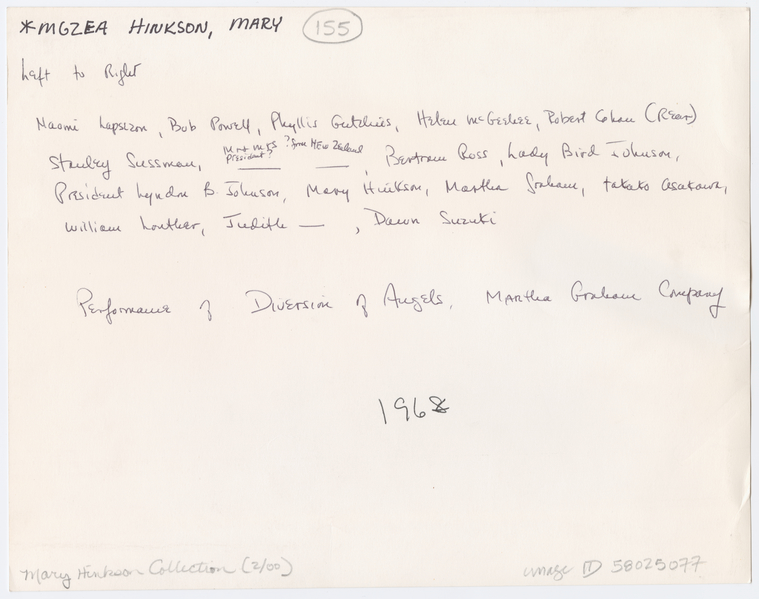 *MGZEA HINKSON, MARY 155
Left to Right
Naomi Lapszon, Bob Powell, Phyllis Gutelius, Helen McGehee, Robert Cohan (Rear)
Mr + Mrs ? from New Zealand
President?
Stanley Sussman, —— ——, Bertram Ross, Lady Bird Johnson,
President Lyndon B. Johnson, Mary Hinkson, Martha Graham, Takako Asakawa,
William Louther, Judith —, Dawn Suzuki
Performance of Diversion of Angels, Martha Graham Company
1968
Mary Hinkson Collection (2/00)
image ID 58025077